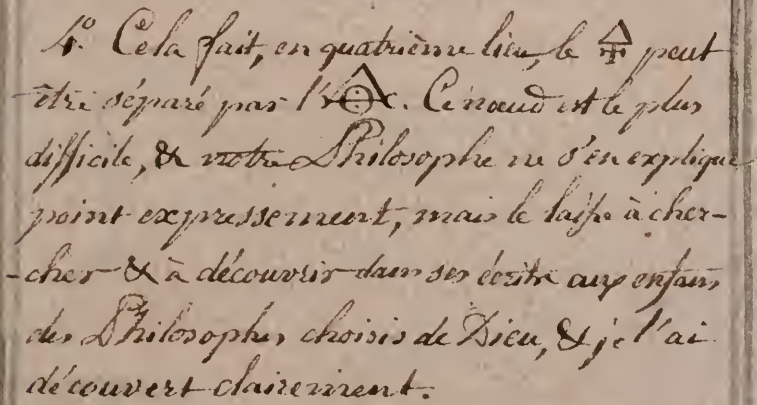 4.° Cela fait, en quatrième lieu, le 🜍 peut
être séparé par l'. Ce nœud est le plus
difficile, & notre Philosophe ne s'en explique
point expressement, mais le laisse à cher-
-cher & à découvrir dans ses écrits aux enfans
des Philosophes choisis de Dieu, & je l'ai
découvert clairement.